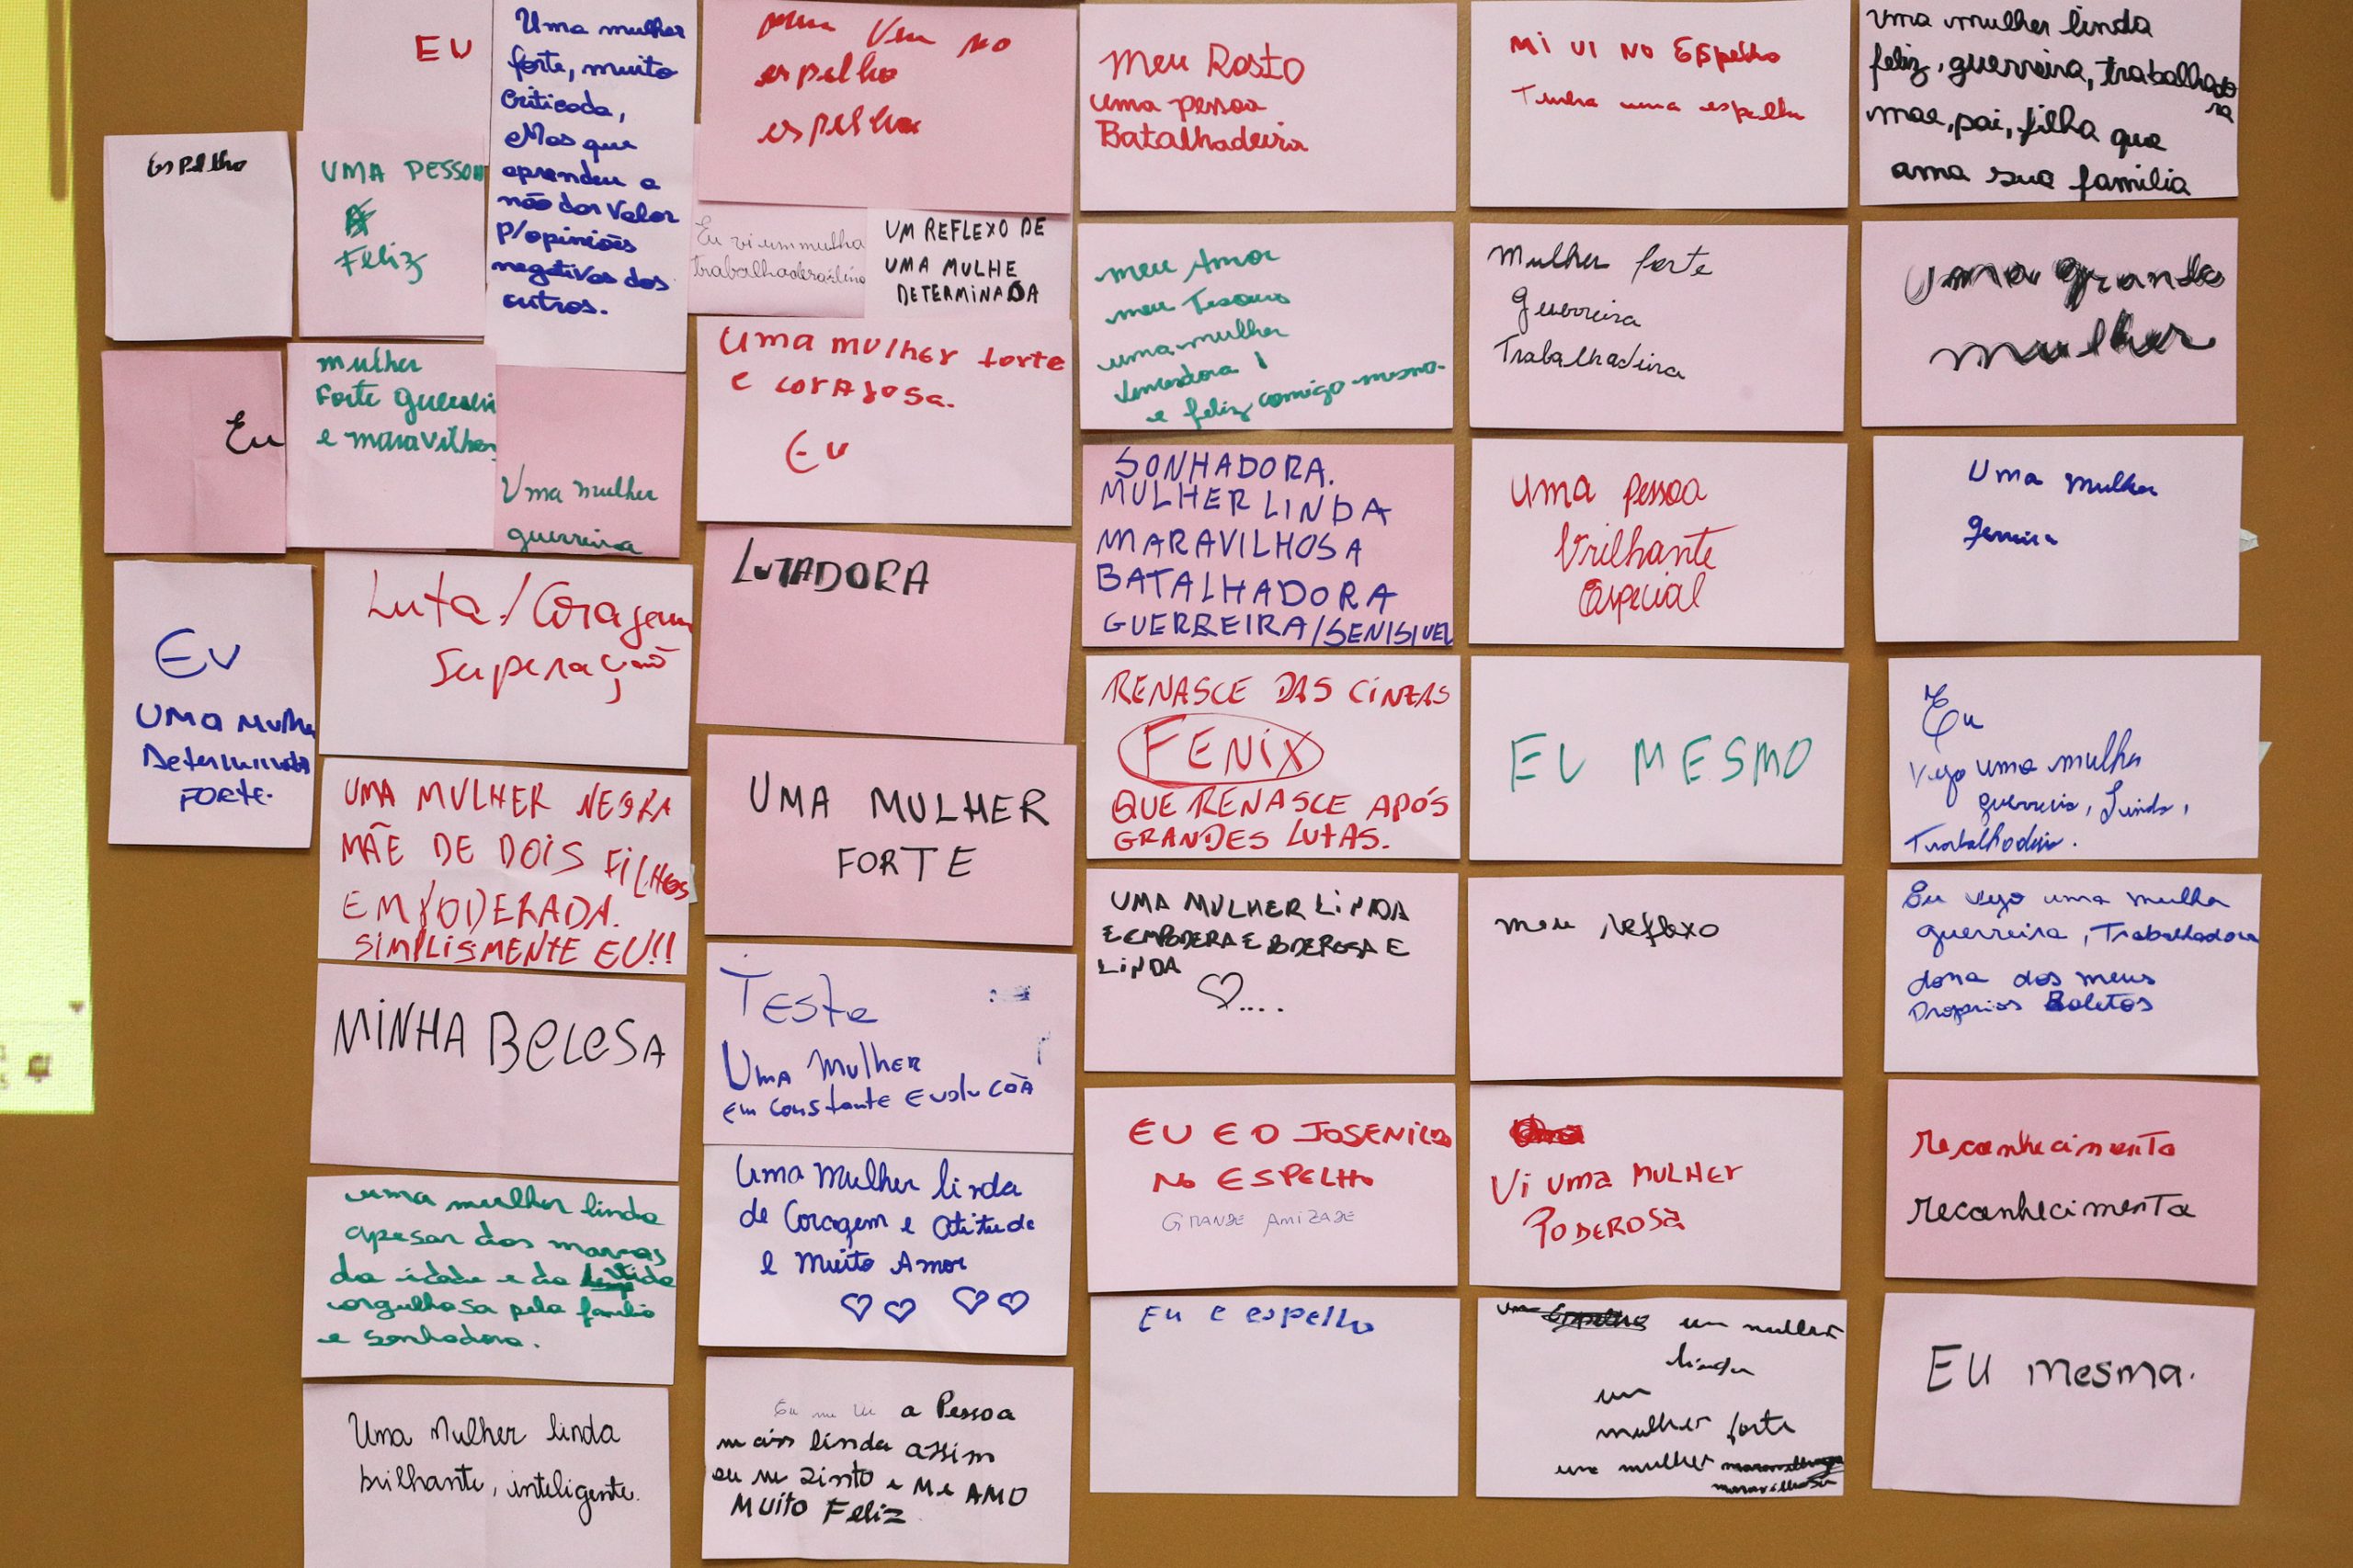 EU
UMA PESSOA
FELIZ
Espelho
Eu
mulher
Forte guerreir
e maravilhos
Uma mulher
guerreira
EU
UMA MULHE
Determinada
FORTE.
Uma mulher
forte, muito
criticada,
Mas que
aprendeu a
não dar valor
p/opiniões
negativas dos
outros.
Luta/Coragem
Superação
UMA MULHER NEGRA
MÃE DE DOIS FILHOS
EMPODERADA.
SIMPLISMENTE EU!!
MINHA BELESA
uma mulher linda
apesar das marcas
da idade e da vida
orgulhosa pela familia
e sonhadora.
Uma Mulher linda
brilhante, inteligente.
Vem no
espelho
espelho
Eu vi um mulha
UM REFLEXO DE
UMA MULHE
DETERMINADA
Uma mulher forte
e corajosa.
EU
LUTADORA
UMA MULHER
FORTE
Teste
Uma Mulher
em constante EvoluCOÃ
Uma Mulher linda
de Coragem e atitude
e Muito Amor
Eu me vi a Pessoa
mais linda assim
eu me sinto e Me AMO
MUITO FELIZ
Meu Rosto
uma pessoa
Batalhadeira
meu Amor
meu Tesouro
uma mulher
Vencedora!
e feliz comigo mesmo.
SONHADORA.
MULHER LINDA
MARAVILHOSA
BATALHADORA
GUERREIRA/SENISIVEL
RENASCE DAS CINZAS
FENIX
QUE RENASCE APÓS
GRANDES LUTAS.
UMA MULHER LINDA
E EMPODERA E PODEROSA E
LINDA
....
EU E O JOSENILDO
NO ESPELHO
GRANDE AMIZADE
EU E espelho
Mi VI NO Espelho
Tinha uma espelho
Mulher forte
Guerreira
Trabalhadeira
Uma pessoa
brilhante
Especial
EU MESMO
meu reflexo
Vi uma MULHER
PODEROSA
um mulher
linda
um
mulher forte
um mulher
maravilhosa
Uma mulher linda
feliz, guerreira, trabalhadora
mae, pai, filha que
ama sua familia
Uma grande
mulher
Uma mulher
gerreira
Eu
Vejo uma mulher
guerreira, Linda,
Trabalhadeira.
Eu vejo uma mulher
guerreira, Trabalhadora
dona dos meus
Proprios Boletos
reconhecimento
reconhecimento
EU mesma.